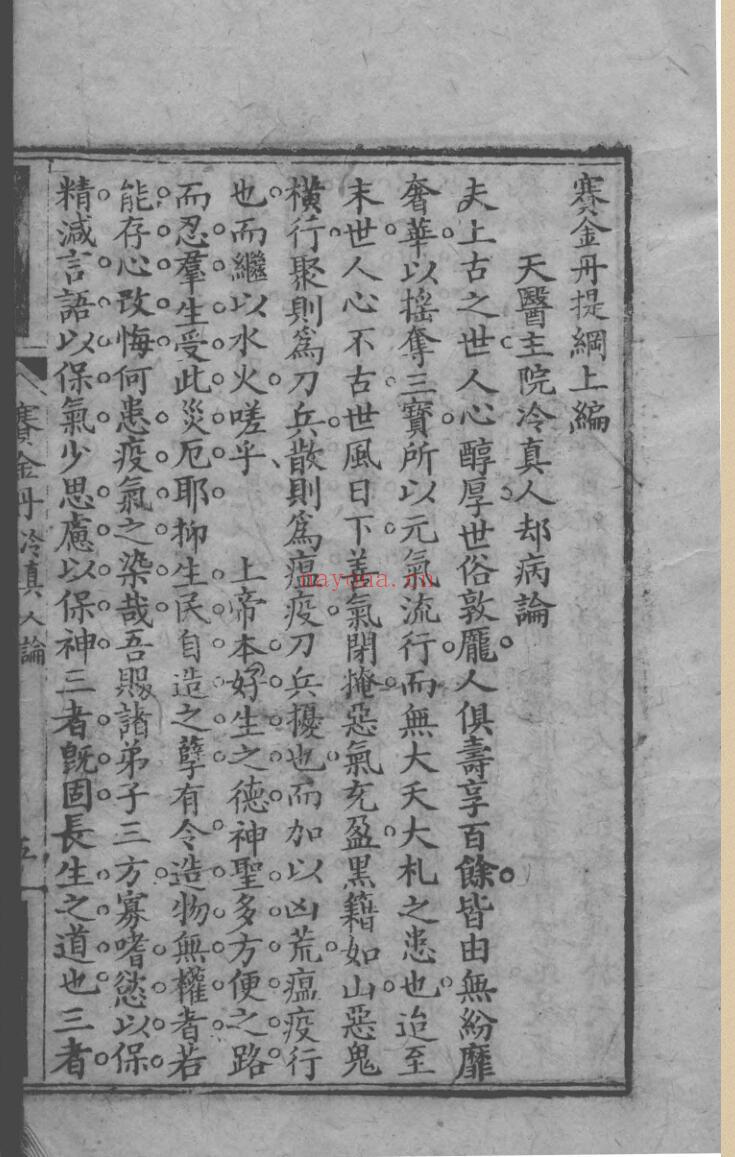 賽金丹提綱上編
天醫主院冷真人却病論
夫上古之世人心醇厚世俗敦龐人俱壽享百餘皆由無紛靡
奢華以搖奪三寶所以元氣流行而無大夭大札之患也迨至
末世人心不古世風日下善氣閉掩惡氣充盈黑籍如山惡鬼
橫行聚則爲刀兵散則爲瘟疫刀兵擾也而加以凶荒瘟疫行
也而繼以水火嗟乎 上帝本好生之德神聖多方便之路
而忍羣生受此災厄耶抑生民自造之孽有令造物無權者若
能存心改悔何患疫氣之染哉吾賜諸弟子三方寡嗜慾以保
精減言語以保氣少思慮以保神三者既固長生之道也三者
賽金丹 冷真人論